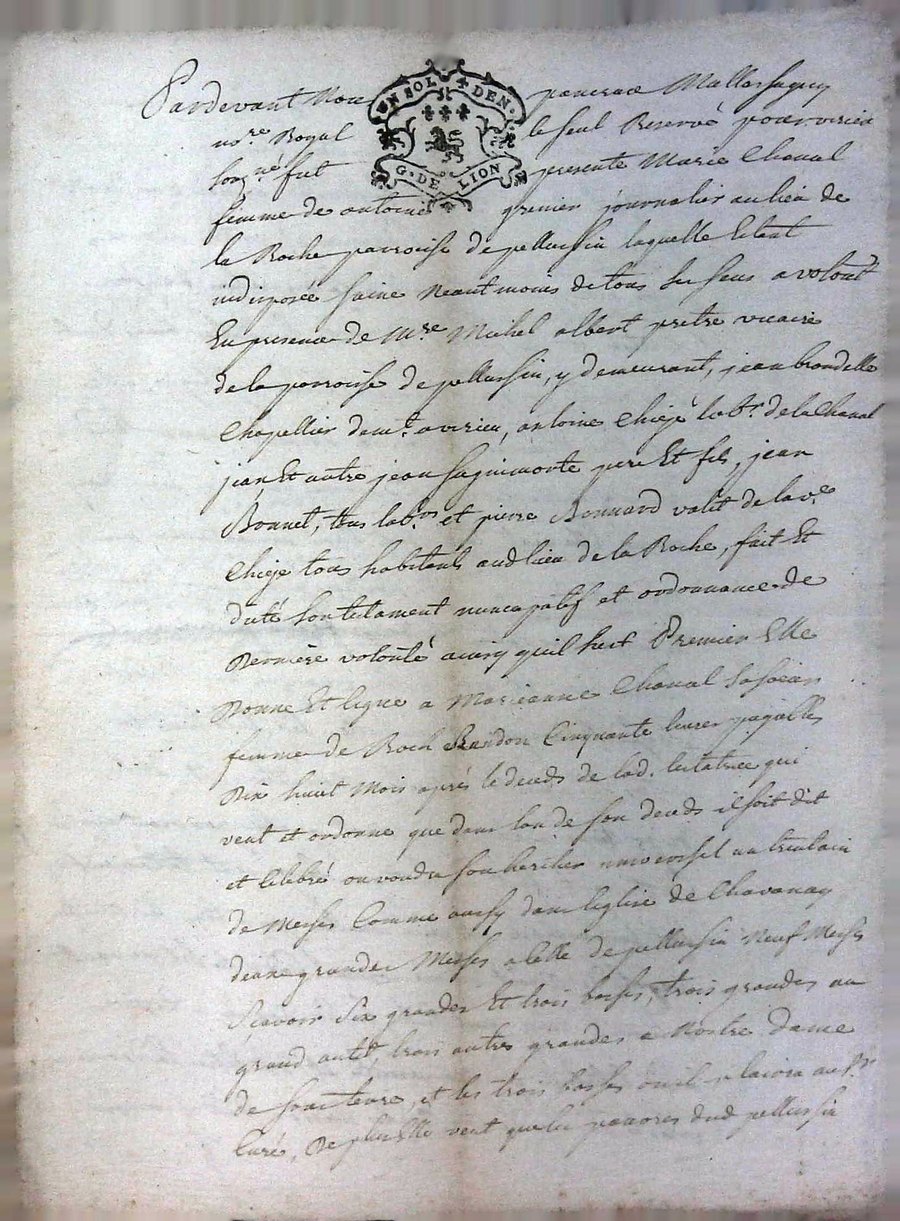 UN SOL 4 DEN.
G. DE LION
Pardevant Nous pancrace Mallassagny
no.re Royal le seul Reservé pour virieu
soug.né fut presente Marie Chaval
femme de antoine grenier journalier au lieu de
la Roche parroisse de pellussin laquelle Estant
indisposée saine Neantmoins de tous ses sens a volont.t
En presence de M.re Michel albert pretre vicaire
de la parroisse de pellussin, y demeurant, jean brondelle
Chapellier dem.t a virieu, antoine Chieze lab.r de la Chaval
jean Et autre jean saginmorte pere Et fils, jean
Bonnet, tous lab.rs et pierre Bonnard valit de la v.e
Chieze tous habitants aud lieu de la Roche, fait Et
dicté son testament nuncupatif et ordonnance de
Derniere volonté ainsy quil suit Premier Elle
Donne Et legue a Marianne Chaval sa
femme de Roch Brandon Cinquante livres payables
Dix huit Mois aprés le deceds de lad. testatrice qui
veut et ordonne que dans lan de son deceds il soit dit
et Celebré ou voudra son heritier universel un trentain
de Messes Comme aussy dans leglise de Chavanay
deux grandes Messes a Celle de pellussin Neuf Messes
Scavoir Six grandes Et trois basses, trois grandes au
grand autel, trois autres grandes a Nostre Dame
de , et les trois basses ou il plaira au s.r
Curé, De plus Elle veut que les pauvres dud pellussin